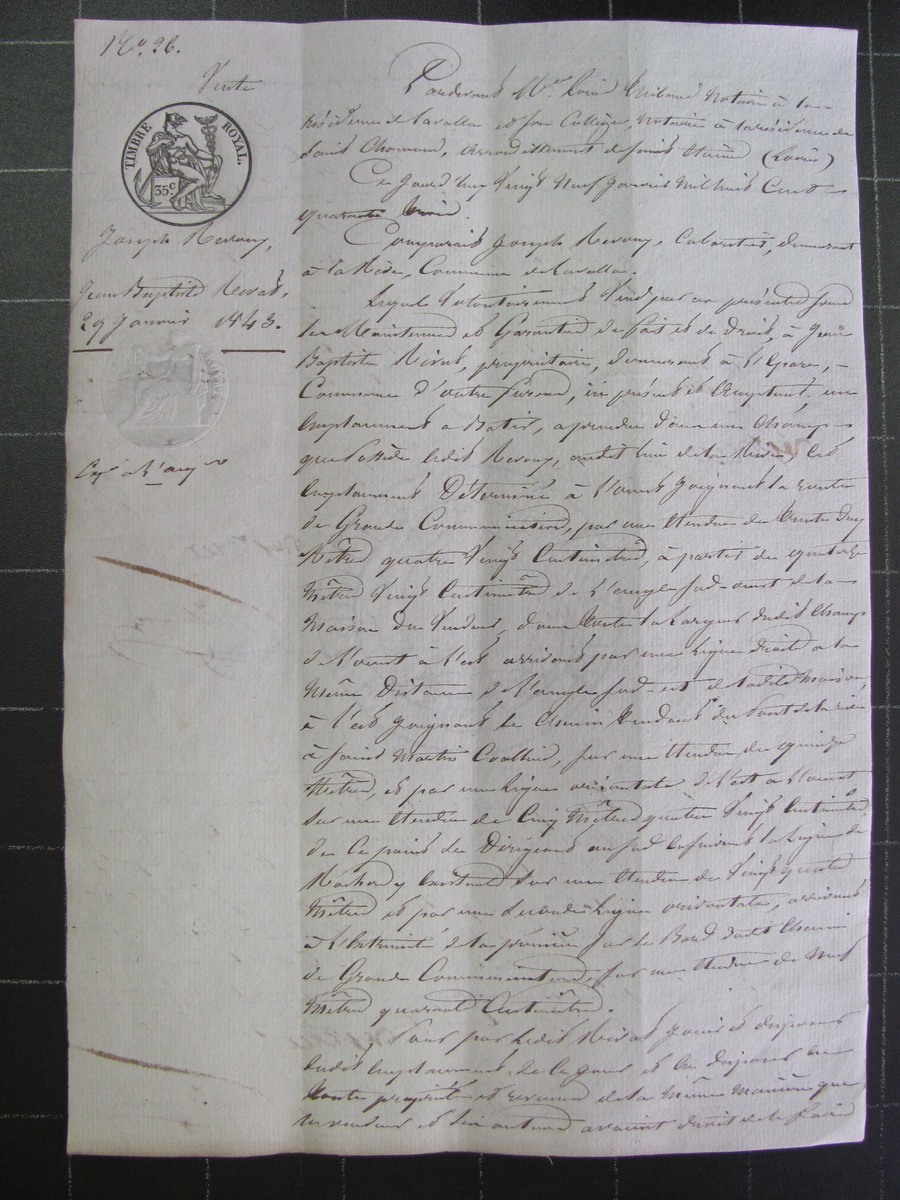 Vente
TIMBRE ROYAL.
35 c.
Joseph Revoux,
Jean Baptiste Rivat,
29 Janvier 1843.
Pardevant Me Louis Thibaud Notaire à la
résidence de Lavalla et son Collègue, Notaire à la résidence de
Saint Chamond, arrondissement de Saint Etienne (Loire)
Ce jourd'huy Vingt Neuf Janvier Mil huit Cent
quarante trois.
Comparait Joseph Revoux, Cabaretier, demeurant
à la Rive, Commune de Lavalla.
Lequel Volontairement Vend par ces présentes sous
la Maintenue et Garantie de fait et de Droit, à Jean
Baptiste Rivat, propriétaire, demeurant à l'
Commune d'outre furand, ici présent et Acceptant, un
Emplacement à Batir, a prendre dans un Champ
que possède ledit Revoux, audit lieu de la Rive, Cet
Emplacement Déterminé à l'ouest joignant la route
de Grande Communication, par une étendue de trente deux
Mètres quatre Vingt Centimètres, a partir de quatorze
Mètres Vingt Centimètres de l'angle sud-ouest de la
Maison du Vendeur, dans toute la Largeur dudit Champ
de l'ouest à l'est arrivant par une Ligne droite a la
Même Distance de l'angle sud-est de ladite Maison,
à l'est joignant le Chemin tendant du Pont de la rive
à Saint Martin Coallieu, par une étendue de quinze
Mètres, et par une Ligne orisontale de l'est a l'ouest
sur une étendue de Cinq Mètres quatre Vingt Centimètres,
de Ce point se Dirigeant au sud suivant la Ligne de
Rocher y Existant sur une étendue de Vingt quatre
Mètres et par une seconde Ligne orisontale, arrivant
à l'Extrémité de la première sur le Bord dudit Chemin
de Grande Communication, sur une étendue de Neuf
Mètres quarante Centimètres.
Pour par Ledit Rivat jouir et disposer
dudit Emplacement de Ce jour et En disposer en
toute propriété et revenus de la même manière que
le vendeur et ses auteurs avaient droit de le faire